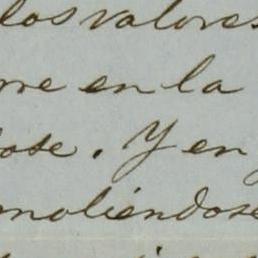 los valores
me en la
ose. Y en
moliendose